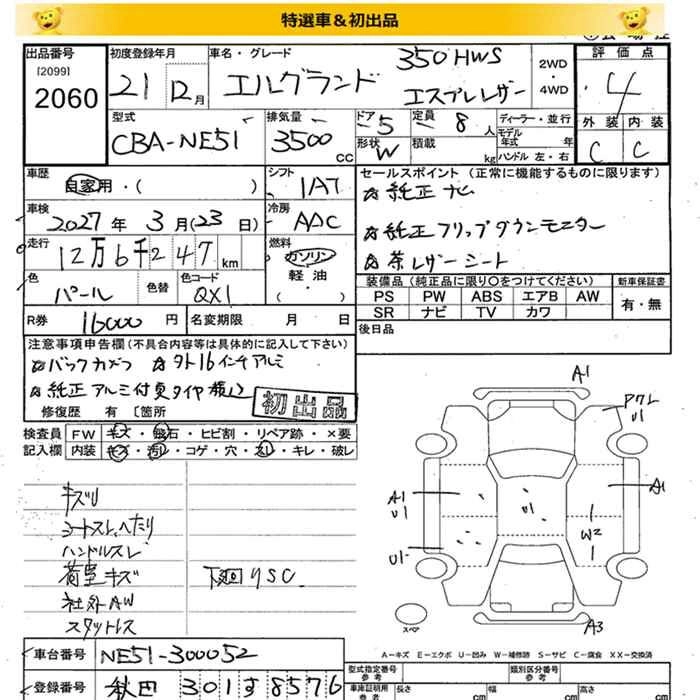 特選車＆初出品
出品番号 初度登録年月 車名・グレード 350HWS 2WD・4WD 評価点
[2099] 2060 21 12月 エルグランド エスプレレザー 4
型式 排気量 ドア 5 定員 8人 ディーラー・並行 外装 内装
CBA-NE51 3500cc 形状 W 積載 kg モデル年式 年 C C
ハンドル 左・右
車歴 自家用・( ) シフト 1AT セールスポイント (正常に機能するものに限ります)
☆純正ナビ
車検 2027年 3月(23日) 冷房 AAC ☆純正フリップダウンモニター
走行 12万6千247km 燃料 ガソリン 軽油 ( ) ☆茶レザーシート
色 パール 色替 色コード QX1 装備品 (純正品に限り○をつけてください) 新車保証書
PS PW ABS エアB AW 有・無
SR ナビ TV カワ
R券 16000円 名変期限 月 日 後日品
注意事項申告欄(不具合内容等は具体的に記入して下さい)
☆バックカメラ ☆夕ト16インチアルミ
☆純正アルミ付夏タイヤ積込
初出品
修復歴 有 〔箇所
検査員 FW キズ・飛石・ヒビ割・リペア跡・×要
記入欄 内装 キズ・汚レ・コゲ・穴・スレ・キレ・破レ
キズU
シートスレ、へたり
ハンドルスレ
荷室キズ 下廻りSC
社外AW
スタットレス
A1
アクスレ U1
A1 U1
A1
U1
W2
U1
A3
スペア
A－キズ E－エクボ U－凹み W－補修跡 S－サビ C－腐食 XX－交換済
車台番号 NE51-300052
登録番号 秋田 301 す 8576
型式指定番号 参考 類別区分番号 参考
車庫証明用 参考 長さ cm 幅 cm 高さ cm